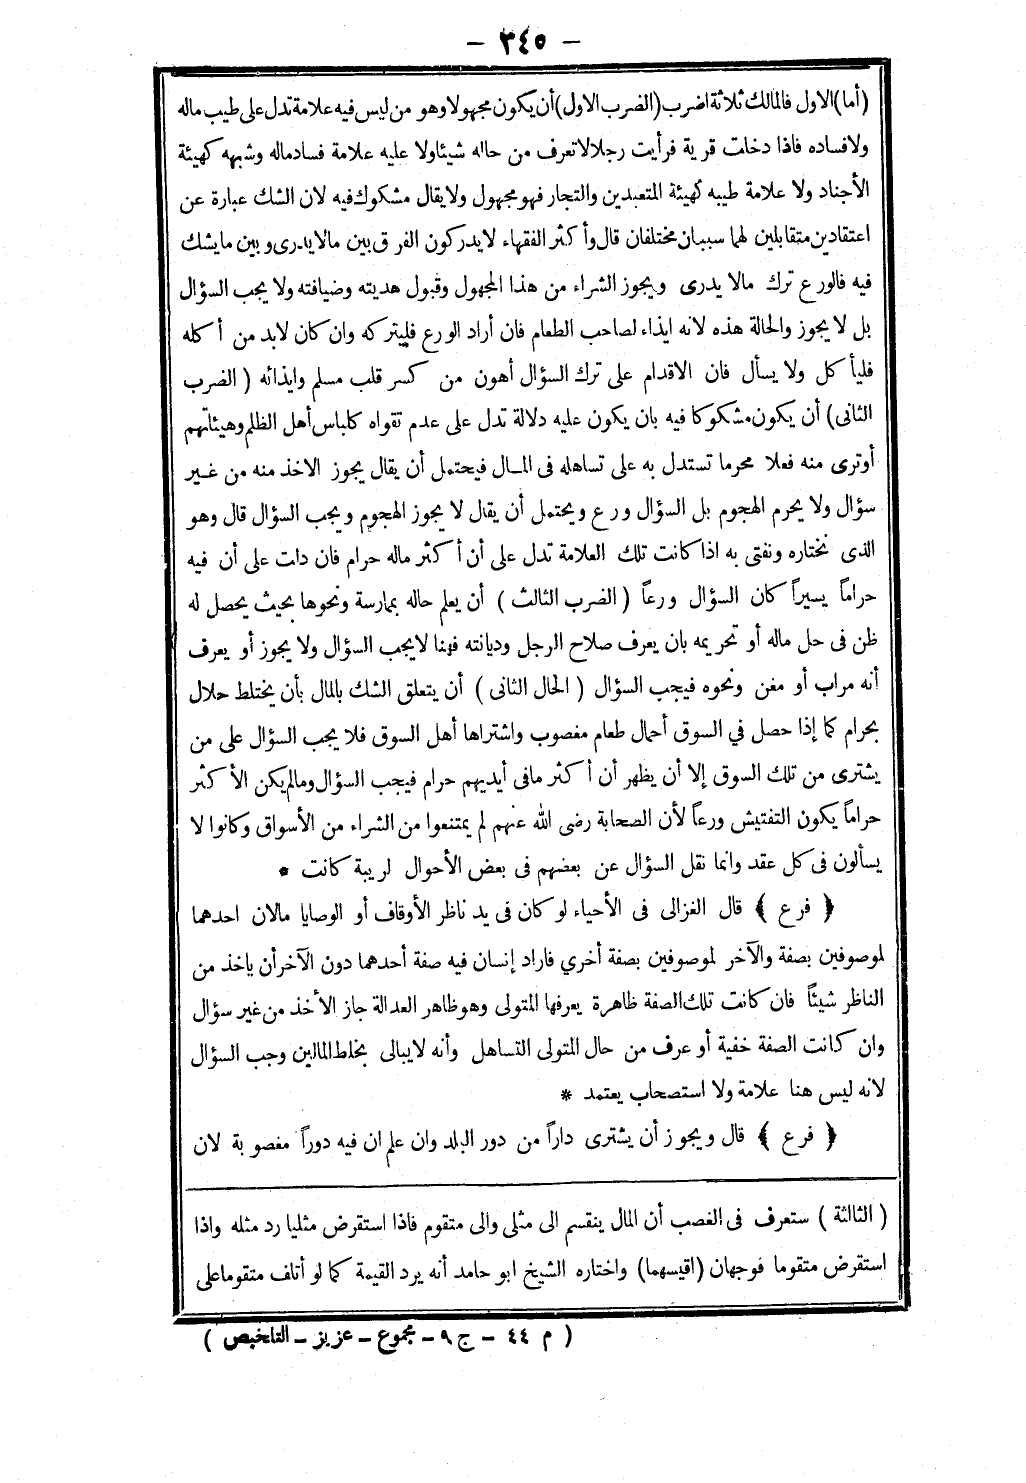 - ٣٤٥ -
(أما) الاول فالمالك ثلاثة اضرب (الضرب الاول) أن يكون مجهولا وهو من ليس فيه علامة تدل على طيب ماله
ولا فساده فاذا دخلت قرية فرأيت رجلا لا تعرف من حاله شيئا ولا عليه علامة فساد ماله وشبهه كهيئة
الأجناد ولا علامة طيبه كهيئة المتعبدين والتجار فهو مجهول ولا يقال مشكوك فيه لان الشك عبارة عن
اعتقادين متقابلين لهما سببان مختلفان قال وأكثر الفقهاء لا يدركون الفرق بين مالا يدرى وبين ما يشك
فيه فالورع ترك مالا يدرى ويجوز الشراء من هذا المجهول وقبول هديته وضيافته ولا يجب السؤال
بل لا يجوز والحالة هذه لانه ايذاء لصاحب الطعام فان أراد الورع فليتركه وان كان لابد من أكله
فليأكل ولا يسأل فان الاقدام على ترك السؤال أهون من كسر قلب مسلم وايذائه (الضرب
الثانى) أن يكون مشكوكا فيه بان يكون عليه دلالة تدل على عدم تقواه كلباس أهل الظلم وهيئاتهم
أو ترى منه فعلا محرما تستدل به على تساهله فى المال فيحتمل أن يقال يجوز الاخذ منه من غير
سؤال ولا يحرم الهجوم بل السؤال ورع ويحتمل أن يقال لا يجوز الهجوم ويجب السؤال قال وهو
الذى نختاره ونفتى به اذا كانت تلك العلامة تدل على أن أكثر ماله حرام فان دلت على أن فيه
حراماً يسيراً كان السؤال ورعاً (الضرب الثالث) أن يعلم حاله بممارسة ونحوها بحيث يحصل له
ظن فى حل ماله أو تحريمه بان يعرف صلاح الرجل وديانته فهنا لا يجب السؤال ولا يجوز أو يعرف
أنه مراب أو مغن ونحوه فيجب السؤال (الحال الثانى) أن يتعلق الشك بالمال بأن يختلط حلال
بحرام كما إذا حصل في السوق أحمال طعام مغصوب واشتراها أهل السوق فلا يجب السؤال على من
يشترى من تلك السوق إلا أن يظهر أن أكثر مافى أيديهم حرام فيجب السؤال ومالم يكن الأكثر
حراماً يكون التفتيش ورعاً لأن الصحابة رضى الله عنهم لم يمتنعوا من الشراء من الأسواق وكانوا لا
يسألون فى كل عقد وانما نقل السؤال عن بعضهم فى بعض الأحوال لريبة كانت *
﴿ فرع ﴾ قال الغزالى فى الأحياء لو كان فى يد ناظر الأوقاف أو الوصايا مالان احدهما
لموصوفين بصفة والآخر لموصوفين بصفة أخري فاراد إنسان فيه صفة أحدهما دون الآخر أن ياخذ من
الناظر شيئاً فان كانت تلك الصفة ظاهرة يعرفها المتولى وهو ظاهر العدالة جاز الأخذ من غير سؤال
وان كانت الصفة خفية أو عرف من حال المتولى التساهل وأنه لا يبالى بخلط المالين وجب السؤال
لانه ليس هنا علامة ولا استصحاب يعتمد *
﴿ فرع ﴾ قال ويجوز أن يشترى داراً من دور البلد وان علم ان فيه دوراً مغصوبة لان
(الثالثة) ستعرف فى الغصب أن المال ينقسم الى مثلى والى متقوم فاذا استقرض مثليا رد مثله واذا
استقرض متقوما فوجهان (اقيسهما) واختاره الشيخ ابو حامد أنه يرد القيمة كما لو أتلف متقوما على
(م ٤٤ - ج ٩ - مجموع - عزيز - التلخيص)